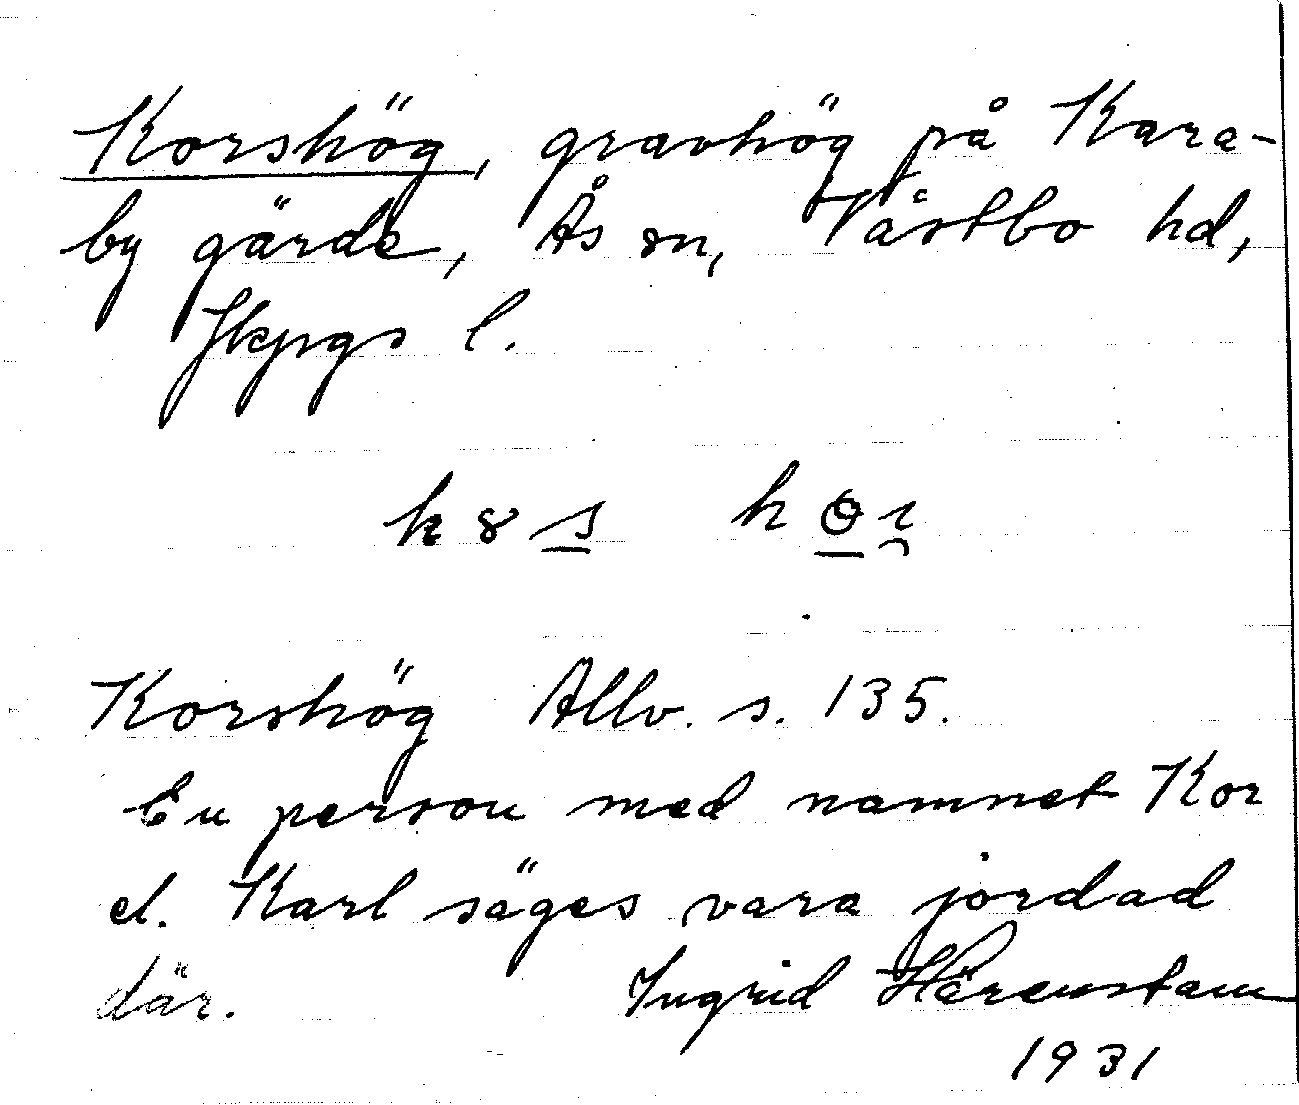 Korshög, gravhög på Kara-
by gärde, Ås sn, Våstbo hd,
Jkpgs l.
Korshög Allv. s. 135.
En person med namnet Kor
el. Karl säges vara jordad
där. Ingrid Härenstam
1931